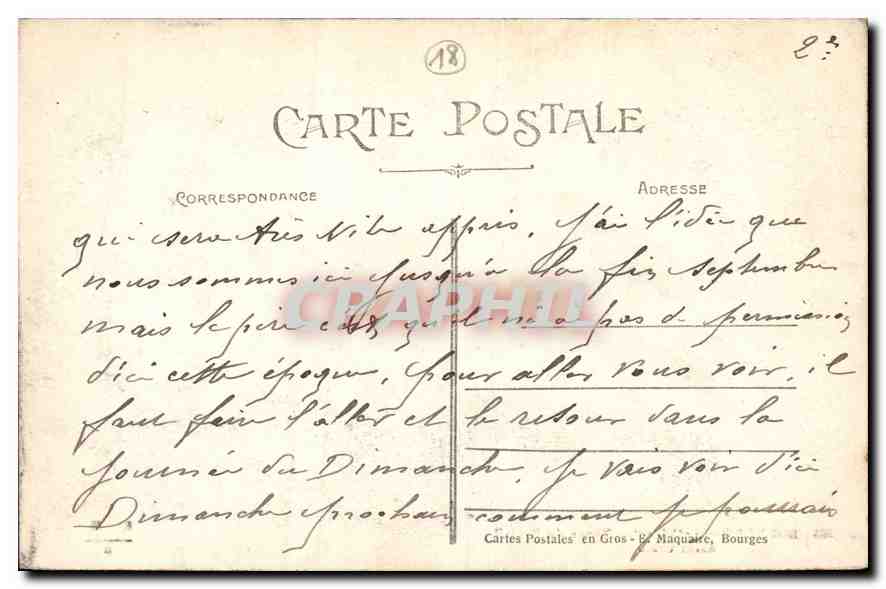 18
2e
CARTE POSTALE
CORRESPONDANCE
ADRESSE
qui sera très vite appris, j'ai l'idée que
nous sommes ici jusqu'à la fin septembre
mais le pire c'est qu'il n'a pas de permission
d'ici cette époque, pour aller vous voir, il
faut faire l'aller et le retour dans la
journée du Dimanche, je vais voir d'ici
Dimanche prochain comment je pourrais
CPAPHIL
Cartes Postales en Gros - E. Maquaire, Bourges